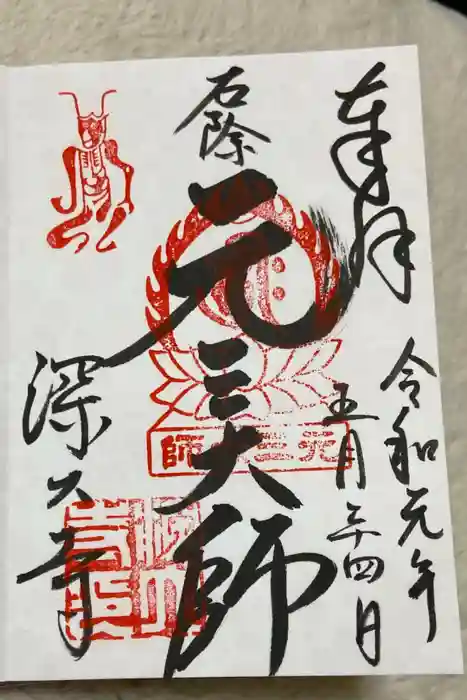 奉拝
令和元年
五月二十四日
厄除
元三大師
元三大師
深大寺